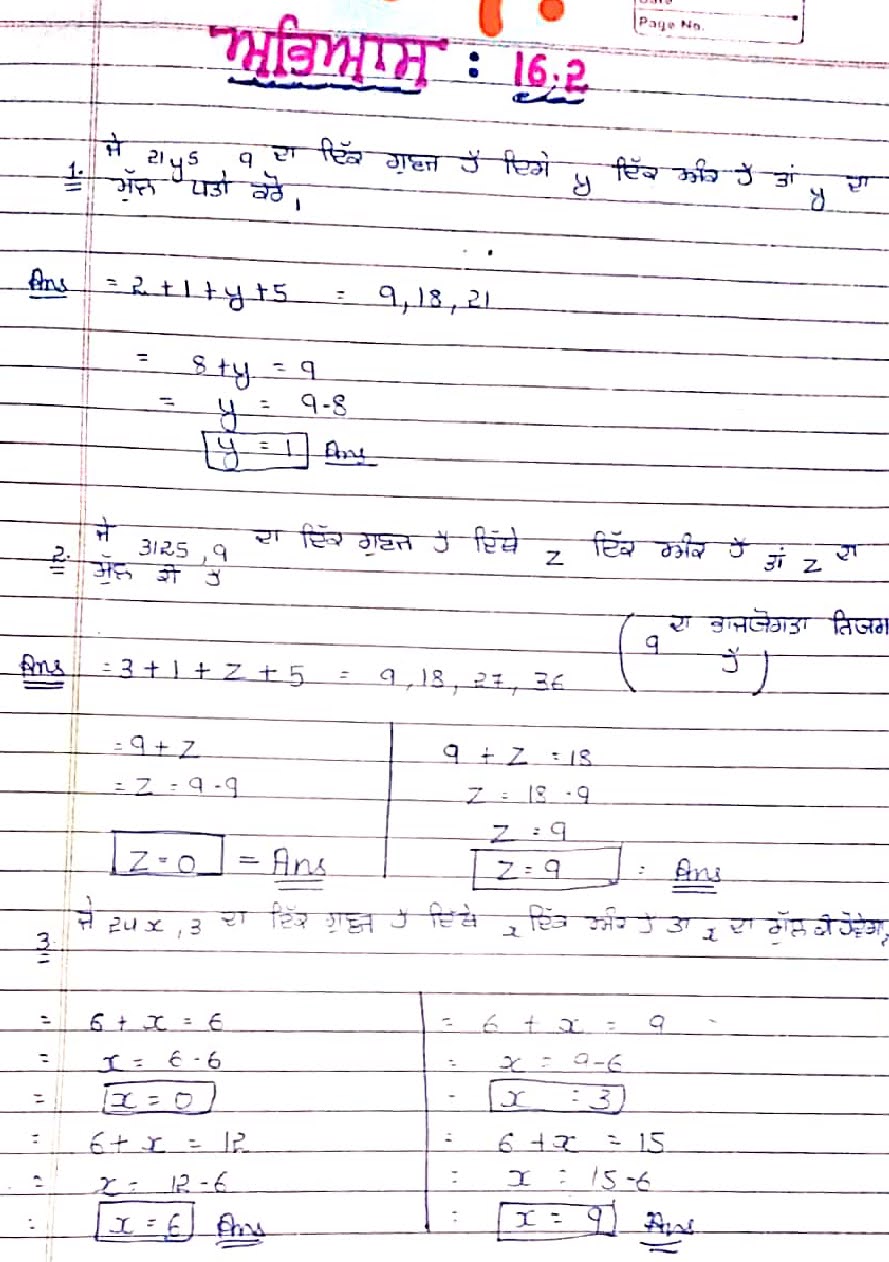 Page No.
ਅਭਿਆਸ : 16.2
1. ਜੇ 21y5 9 ਦਾ ਇੱਕ ਗੁਣਜ ਹੈ ਜਿਥੇ y ਇੱਕ ਅੰਕ ਹੈ ਤਾਂ y ਦਾ
ਮੁੱਲ ਪਤਾ ਕਰੋ।
Ans = 2+1+y+5 = 9,18,21
= 8+y = 9
= y = 9-8
y = 1 Ans
2. ਜੇ 3125,9 ਦਾ ਇੱਕ ਗੁਣਜ ਹੈ ਇੱਥੇ z ਇੱਕ ਅੰਕ ਹੈ ਤਾਂ z ਦਾ
ਮੁੱਲ ਕੀ ਹੈ
(9 ਦਾ ਭਾਜਯੋਗਤਾ ਨਿਯਮ
ਹੈ)
Ans = 3+1+z+5 = 9,18,27,36
=9+z
=z=9-9
z=0 = Ans
9+z=18
z=18-9
z=9
z=9 : Ans
3. ਜੇ 24x,3 ਦਾ ਇੱਕ ਗੁਣਜ ਹੈ ਇੱਥੇ x ਇੱਕ ਅੰਕ ਹੈ ਤਾਂ x ਦਾ ਮੁੱਲ ਕੀ ਹੋਵੇਗਾ,
= 6+x=6
= x=6-6
= x=0
: 6+x=12
= x=12-6
: x=6 Ans
= 6+x=9
: x=9-6
- x=3
: 6+x=15
: x=15-6
: x=9 Ans